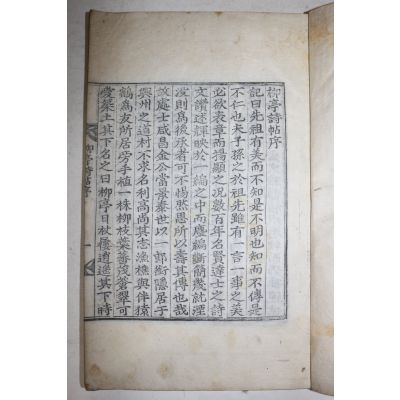 柳亭詩帖序
記曰先祖有美而不知是不明也知而不傳是
不仁也夫子孫之於祖先雖有一言一事之美
必欲表章而揚顯之况數百年名賢達士之詩
文讚述輝映於一編之中而塵編斷爛幾就湮
沒則爲後承者可不惕然思所以壽其傳也哉
故處士咸昌金公當景泰世以一郎銜隱居于
興州之道村不求名利高尚其志漁樵與伴猿
鶴爲友所居旁手植一株柳枝葉蕃茂蒼翠可
愛築土其下名之曰柳亭日杖屨逍遙其下時
柳亭詩帖序
一